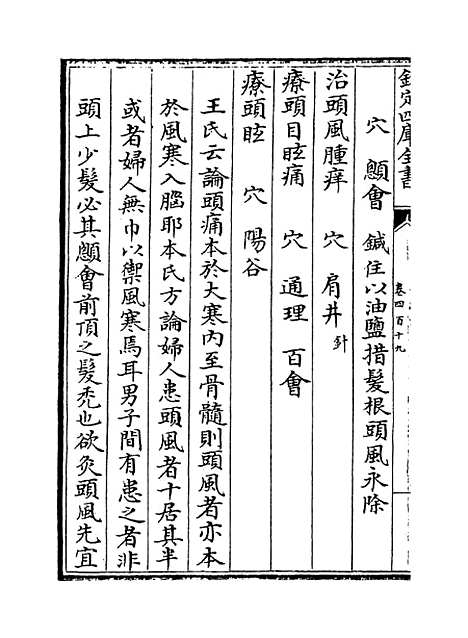 欽定四庫全書
卷四百十九
穴 顖會 鍼住以油鹽揩髮根頭風永除
治頭風腫痒 穴 肩井 針
療頭目眩痛 穴 通理 百會
療頭眩 穴 陽谷
王氏云論頭痛本於大寒內至骨髓則頭風者亦本
於風寒入腦耶本氏方論婦人患頭風者十居其半
或者婦人無巾以禦風寒焉耳男子間有患之者非
頭上少髮必其顖會前頂之髮禿也欲灸頭風先宜